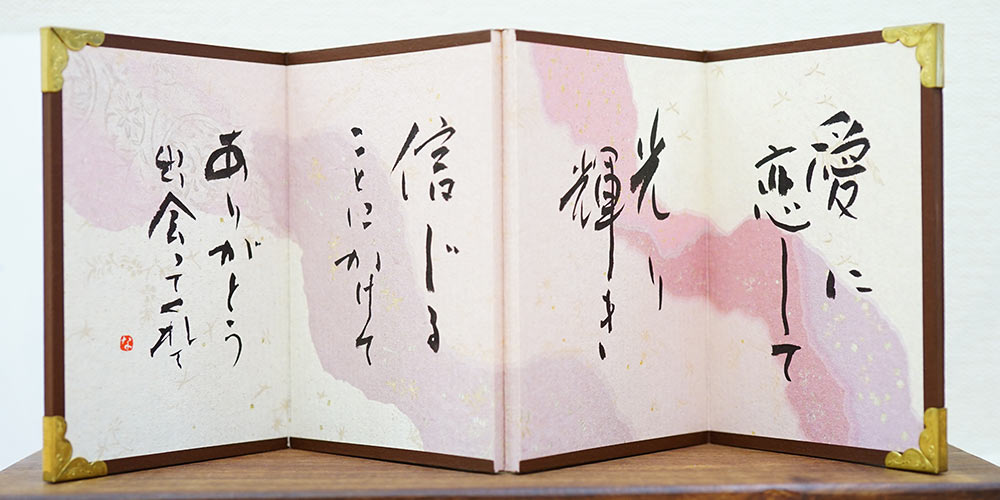 愛に
恋して
光り
輝き
信じる
ことにかけて
ありがとう
出会ってくれて